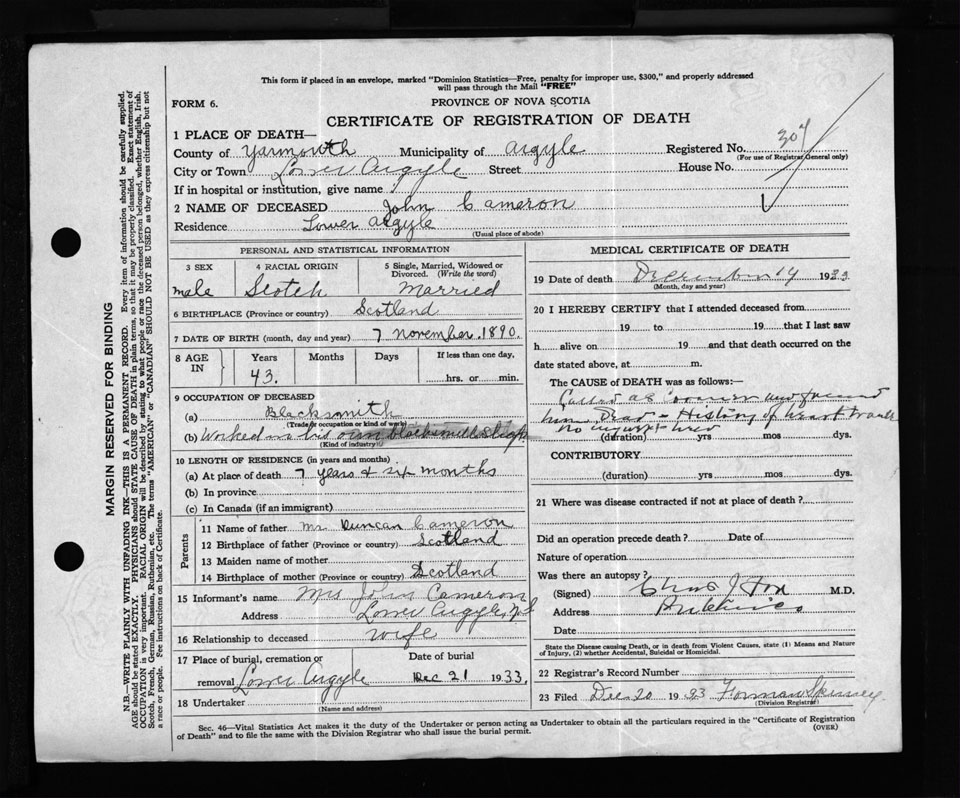 This form if placed in an envelope, marked "Dominion Statistics—Free, penalty for improper use, $300," and properly addressed
will pass through the Mail "FREE"
FORM 6. PROVINCE OF NOVA SCOTIA
CERTIFICATE OF REGISTRATION OF DEATH
1 PLACE OF DEATH—
County of Yarmouth Municipality of Argyle Registered No. 307
(For use of Registrar General only)
City or Town Lower Argyle Street House No.
If in hospital or institution, give name
2 NAME OF DECEASED John Cameron
Residence Lower Argyle
(Usual place of abode)
PERSONAL AND STATISTICAL INFORMATION
3 SEX 4 RACIAL ORIGIN 5 Single, Married, Widowed or
Divorced. (Write the word)
male Scotch Married
6 BIRTHPLACE (Province or country) Scotland
7 DATE OF BIRTH (month, day and year) 7 November. 1890.
8 AGE IN Years Months Days If less than one day,
43. hrs. or min.
9 OCCUPATION OF DECEASED
(a) Blacksmith
(Trade or occupation or kind of work)
(b) Worked in his own blacksmith shop
(Kind of industry)
10 LENGTH OF RESIDENCE (in years and months)
(a) At place of death 7 years & six months
(b) In province
(c) In Canada (if an immigrant)
Parents
11 Name of father Mr Duncan Cameron
12 Birthplace of father (Province or country) Scotland
13 Maiden name of mother
14 Birthplace of mother (Province or country) Scotland
15 Informant's name Mrs John Cameron
Address Lower Argyle, NS
16 Relationship to deceased wife
17 Place of burial, cremation or Date of burial
removal Lower Argyle Dec 21 1933.
18 Undertaker
(Name and address)
MEDICAL CERTIFICATE OF DEATH
19 Date of death December 19 1933
(Month, day and year)
20 I HEREBY CERTIFY that I attended deceased from
19 to 19 that I last saw
h alive on 19 and that death occurred on the
date stated above, at m.
The CAUSE of DEATH was as follows:—
Called as Coroner and found
him Dead – History of heart trouble
No inquest held
(duration) yrs mos dys.
CONTRIBUTORY
(duration) yrs mos dys.
21 Where was disease contracted if not at place of death?
Did an operation precede death? Date of
Nature of operation
Was there an autopsy?
(Signed) Chas J Fox M.D.
Address Pubnico
Date
State the Disease causing Death, or in death from Violent Causes, state (1) Means and Nature
of Injury, (2) whether Accidental, Suicidal or Homicidal.
22 Registrar's Record Number
23 Filed Dec 20 1933 Forman Spinney
(Division Registrar)
Sec. 46—Vital Statistics Act makes it the duty of the Undertaker or person acting as Undertaker to obtain all the particulars required in the "Certificate of Registration
of Death" and to file the same with the Division Registrar who shall issue the burial permit. (OVER)
MARGIN RESERVED FOR BINDING
N.B.—WRITE PLAINLY WITH UNFADING INK—THIS IS A PERMANENT RECORD. Every item of information should be carefully supplied.
AGE should be stated EXACTLY. PHYSICIANS should STATE CAUSE OF DEATH in plain terms, so that it may be properly classified. Exact statement of
OCCUPATION is very important. RACIAL ORIGIN will be described by stating to what people or race the deceased person belonged, whether English, Irish,
Scotch, French, German, Russian, Ruthenian, etc. The terms "AMERICAN" or "CANADIAN" SHOULD NOT BE USED as they express citizenship but not
a race or people. Fee instructions on back of Certificate.